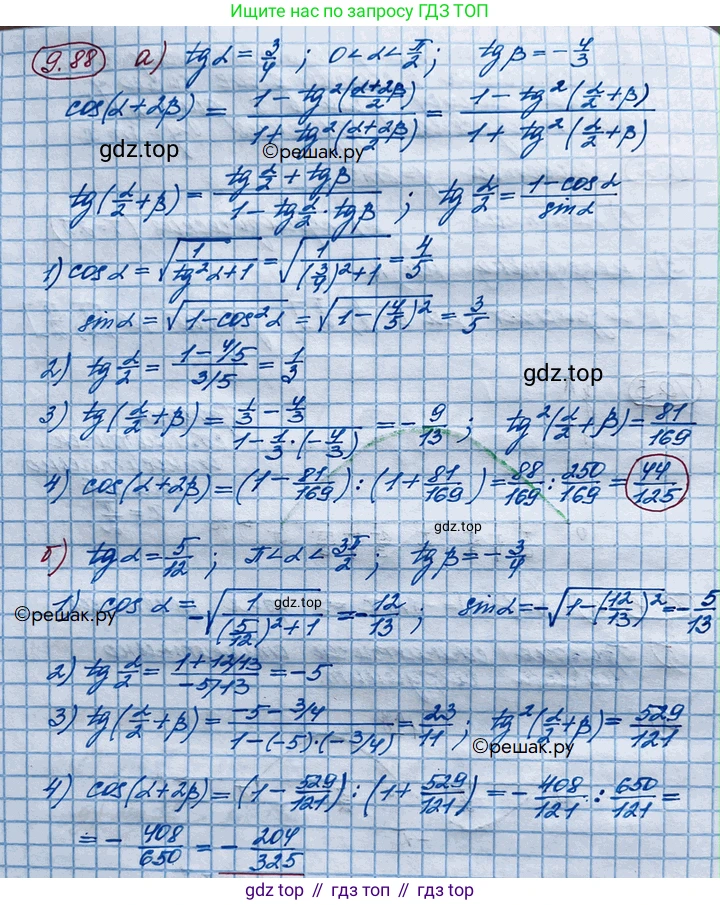 Ищите нас по запросу ГДЗ ТОП
9.88 а) tgα = 3/4 ; 0<α<π/2 ; tgβ = -4/3
cos(α+2β) = (1 - tg²((α+2β)/2))/(1 + tg²((α+2β)/2)) = (1 - tg²(α/2+β))/(1 + tg²(α/2+β))
gdz.top ©решак.ру
tg(α/2+β) = (tg α/2 + tgβ)/(1 - tg α/2 · tgβ) ; tg α/2 = (1-cosα)/sinα
1) cosα = √(1/(tg²α+1)) = √(1/((3/4)²+1)) = 4/5
sinα = √(1-cos²α) = √(1-(4/5)²) = 3/5
2) tg α/2 = (1-4/5)/(3/5) = 1/3
gdz.top
3) tg(α/2+β) = (1/3 - 4/3)/(1 - 1/3·(-4/3)) = -9/13 ; tg²(α/2+β) = 81/169
4) cos(α+2β) = (1 - 81/169) : (1 + 81/169) = 88/169 : 250/169 = 44/125
gdz.top
б) tgα = 5/12 ; π<α<3π/2 ; tgβ = -3/4
1) cosα = -√(1/((5/12)²+1)) = -12/13 ; sinα = -√(1-(12/13)²) = -5/13
gdz.top
©решак.ру
2) tg α/2 = (1+12/13)/(-5/13) = -5
3) tg(α/2+β) = (-5-3/4)/(1-(-5)·(-3/4)) = 23/11 ; tg²(α/2+β) = 529/121
©решак.ру
4) cos(α+2β) = (1 - 529/121) : (1 + 529/121) = -408/121 : 650/121 =
= -408/650 = -204/325
gdz top // гдз топ // гдз.топ // gdz.top